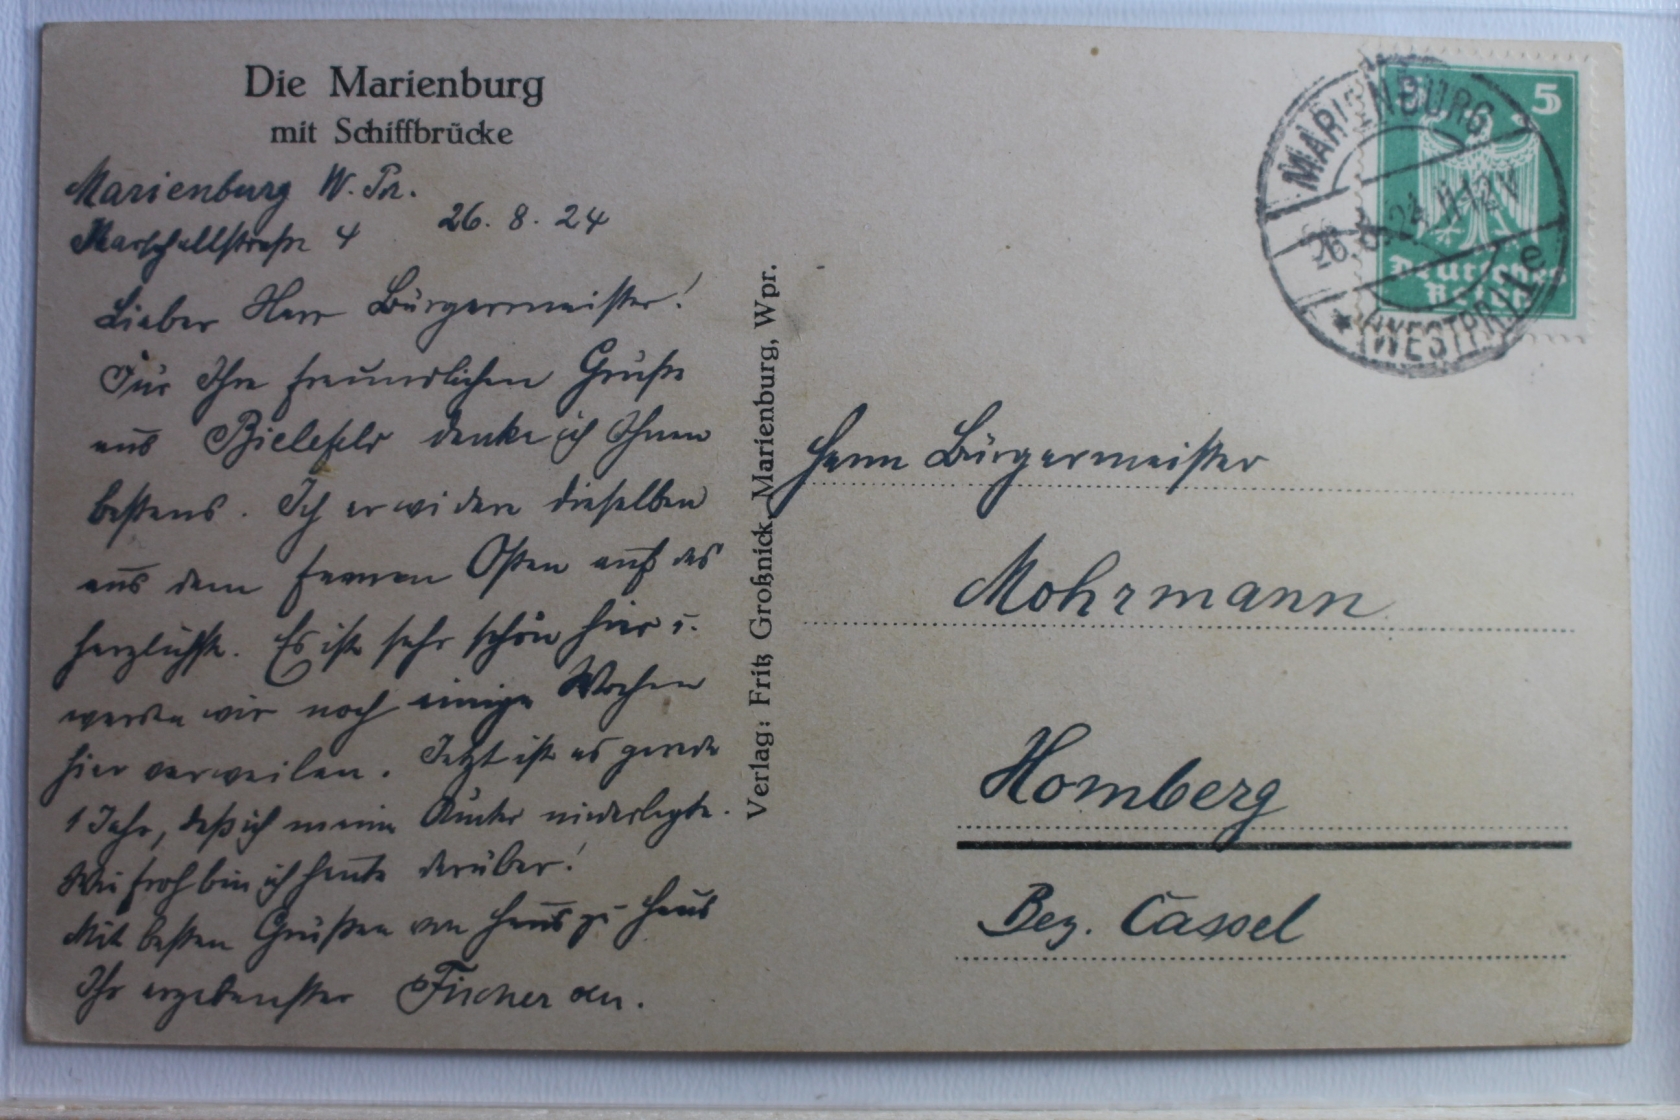 Die Marienburg
mit Schiffbrücke
Marienburg W. Pr.
Marschallstraße 4 26. 8. 24
Lieber Herr Bürgermeister!
Für Ihre freundlichen Grüße
aus Bielefeld danke ich Ihnen
bestens. Ich erwidere dieselben
aus dem fernen Osten auf das
herzlichste. Es ist sehr schön hier u.
werden wir noch einige Wochen
hier verweilen. Jetzt ist es gerade
1 Jahr, daß ich meine Ämter niederlegte.
Wie froh bin ich heute darüber!
Mit besten Grüßen von Haus zu Haus
Ihr ergebenster Fischer
Verlag: Fritz Großnick, Marienburg, Wpr.
MARIENBURG
26.8.24. 11-12V
* (WESTPR.) 1 e
5
Deutsches
Reich
Herrn Bürgermeister
Mohrmann
Homberg
Bez. Cassel